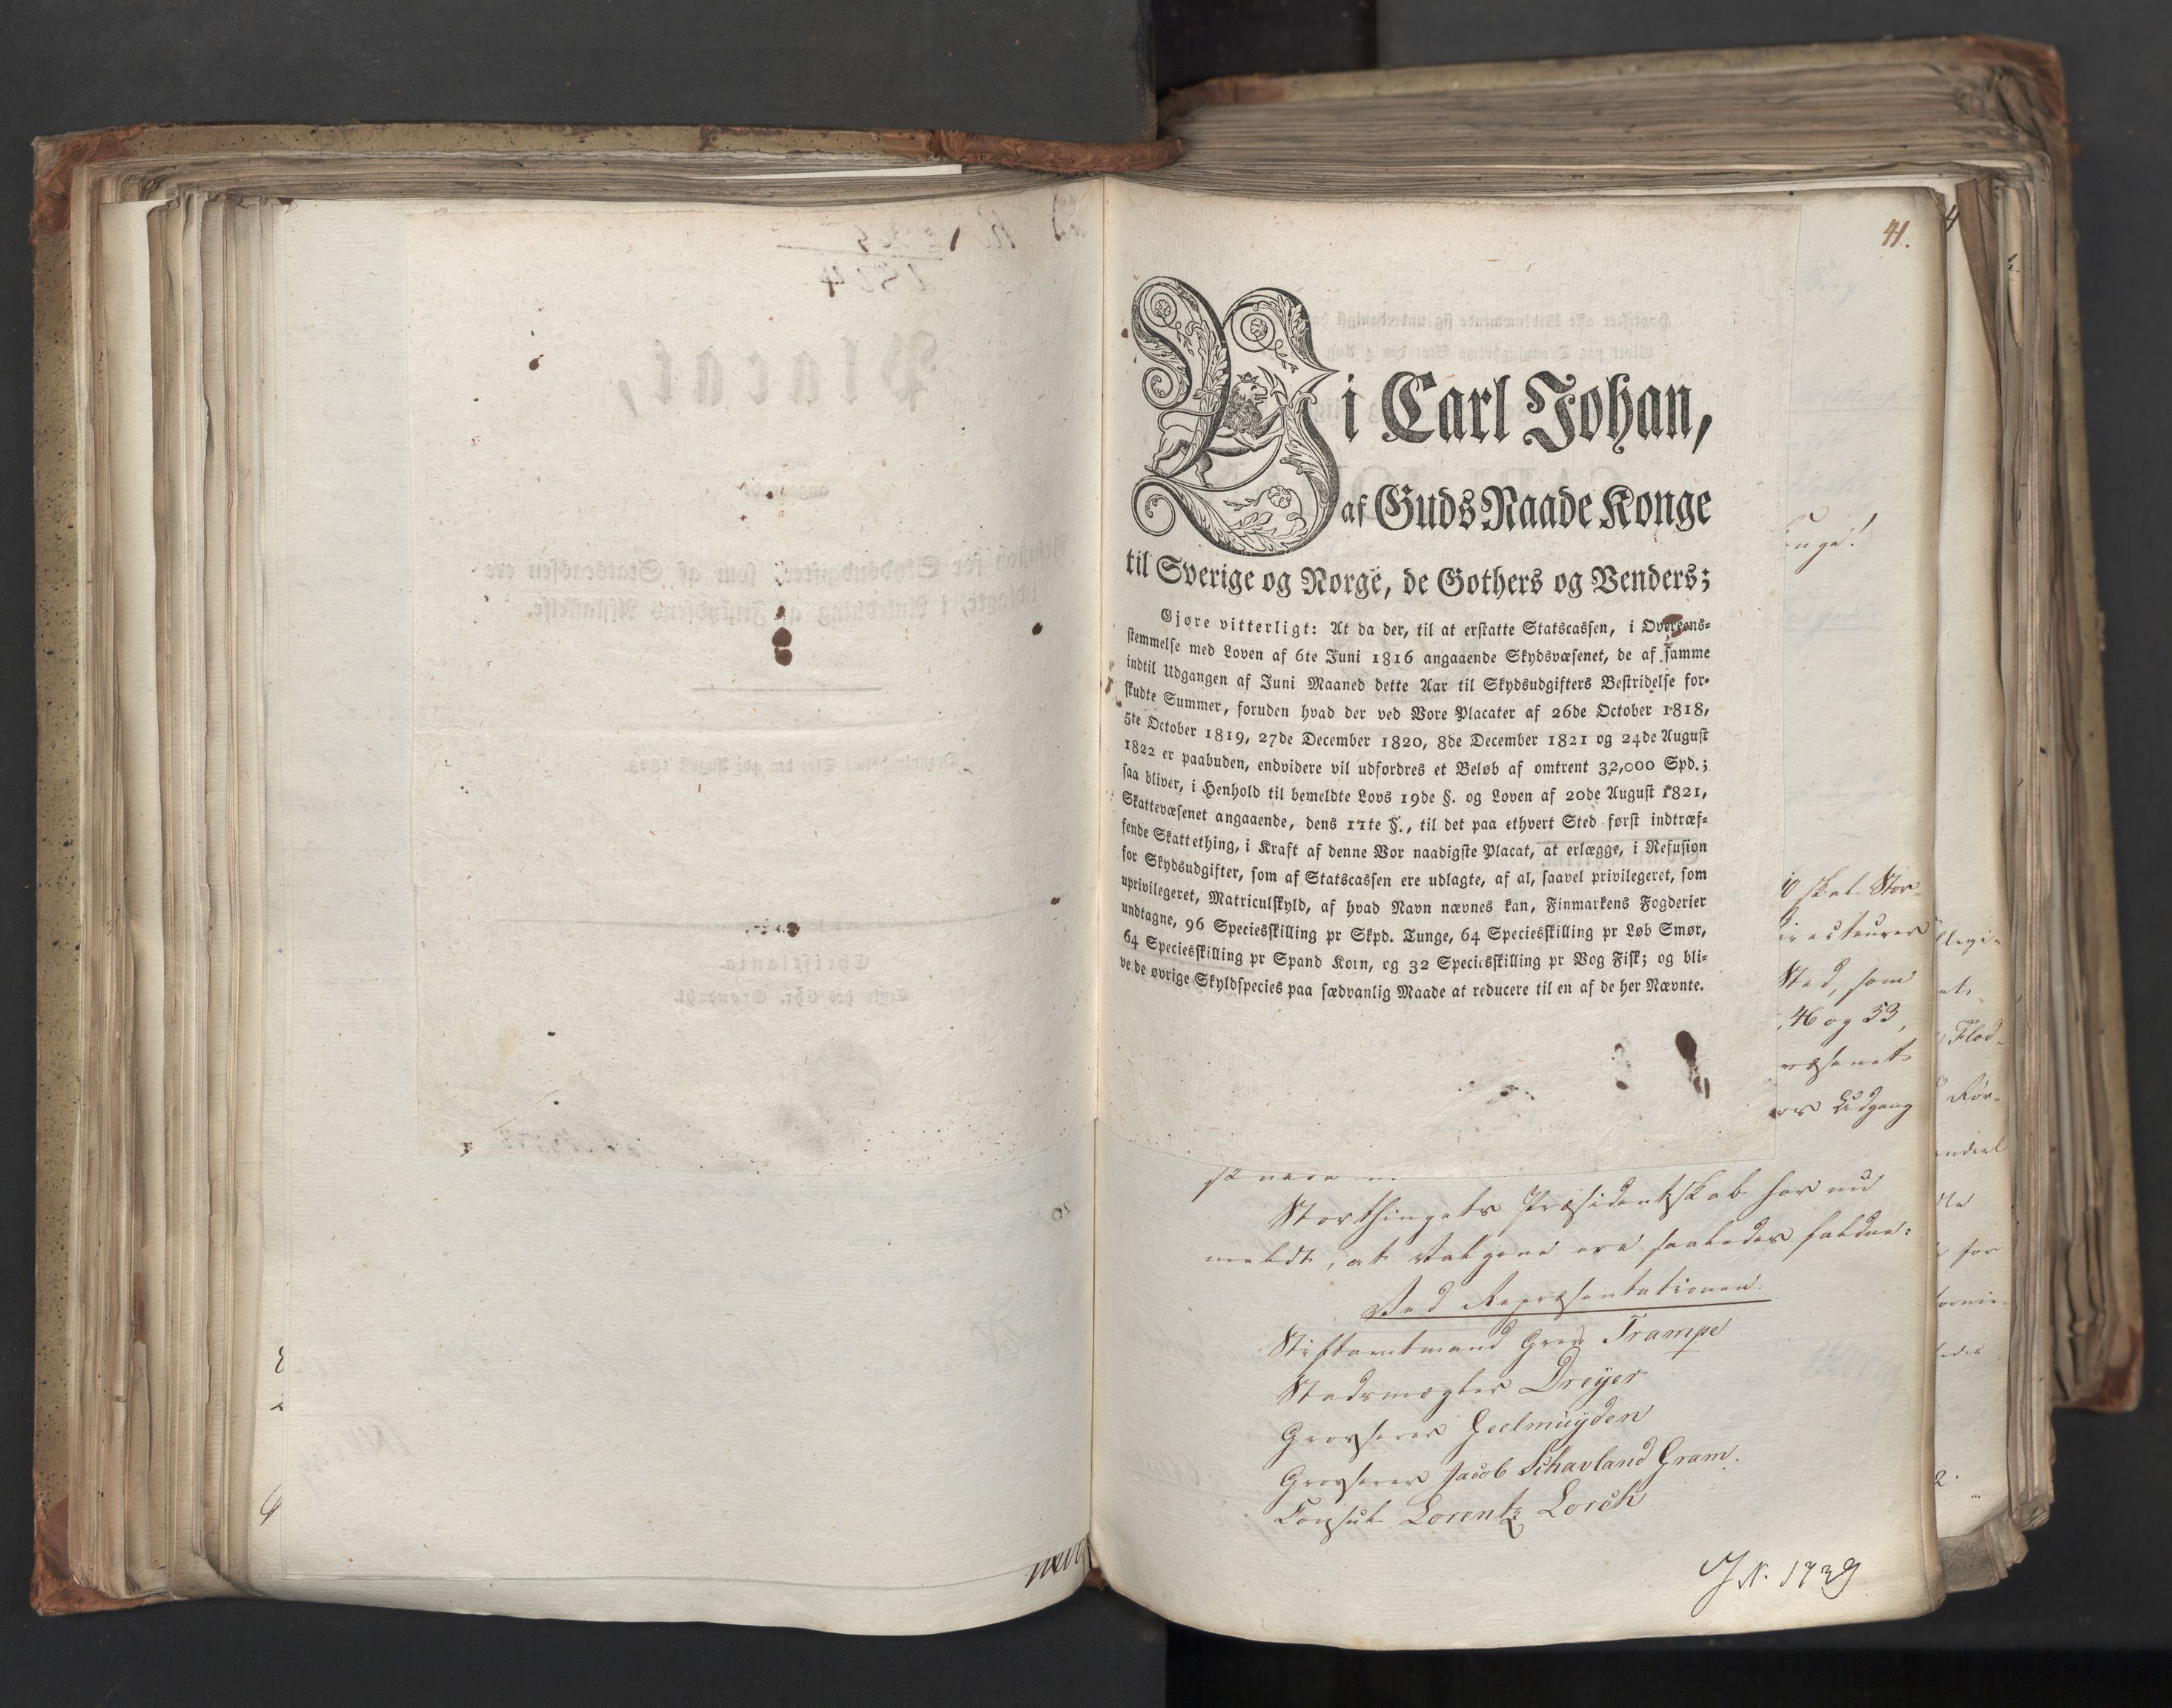 41.
Vi Carl Johan,
af Guds Naade Konge
til Sverige og Norge, de Gothers og Venders;
Gjøre vitterligt: At da der, til at erstatte Statscassen, i Overeens-
stemmelse med Loven af 6te Juni 1816 angaaende Skydsvæsenet, de af samme
indtil Udgangen af Juni Maaned dette Aar til Skydsudgifters Bestridelse for-
skudte Summer, foruden hvad der ved Vore Placater af 26de October 1818,
5te October 1819, 27de December 1820, 8de December 1821 og 24de August
1822 er paabuden, endvidere vil udfordres et Beløb af omtrent 32,000 Spd.;
saa bliver, i Henhold til bemeldte Lovs 19de §. og Loven af 20de August 1821,
Skattevæsenet angaaende, dens 11te §., til det paa ethvert Sted først indtræf-
fende Skattething, i Kraft af denne Vor naadigste Placat, at erlægge, i Refusion
for Skydsudgifter, som af Statscassen ere udlagte, af al, saavel privilegeret, som
uprivilegeret, Matriculskyld, af hvad Navn nævnes kan, Finmarkens Fogderier
undtagne, 96 Speciesskilling pr Skpd. Tunge, 64 Speciesskilling pr Løb Smør,
64 Speciesskilling pr Spand Korn, og 32 Speciesskilling pr Vog Fisk; og bli-
ve de øvrige Skyldspecies paa sædvanlig Maade at reducere til en af de her Nævnte.
skal Stor-
Sted, som
46 og 53,
væsenets
Udgang
Storthingets Præsidentskab har nu
meldt, at Valgene ere saaledes faldne:
Ved Repræsentationen:
Stiftamtmand Grev Trampe
Stadsmægler Dreyer
Grosserer Geelmuyden
Grosserer Jacob Schavland Gram.
Consul Lorentz Lorck
J. N. 1739